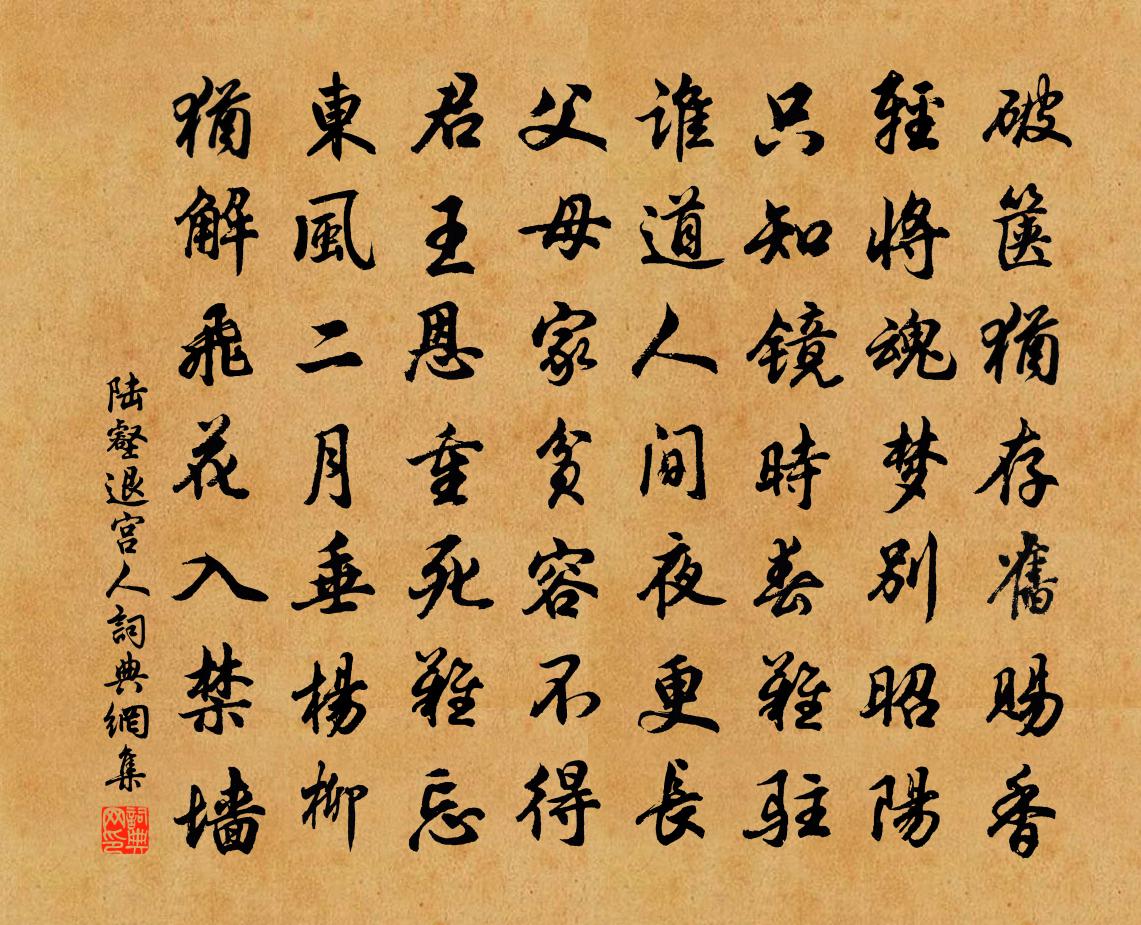 破箧猶存舊賜香
輕將魂梦别昭陽
只知镜時春難駐
谁道人间夜更長
父母家貧容不得
君王恩重死難忘
東風二月垂楊柳
猶解飛花入禁墙
陆壑退宫人詞典網集
詞典网印